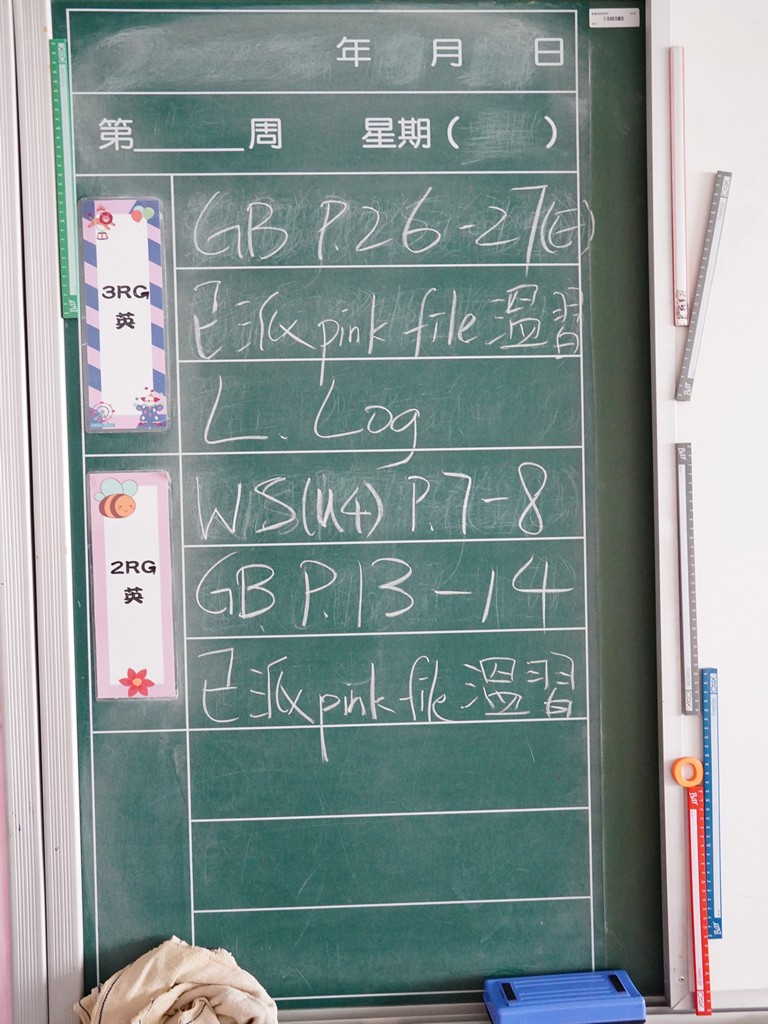 年 月 日
第______周 星期( )
3RG
英
GB P.26-27(E)
已派 pink file 溫習
L. Log
2RG
英
WS(U4) P.7-8
GB P.13-14
已派 pink file 溫習